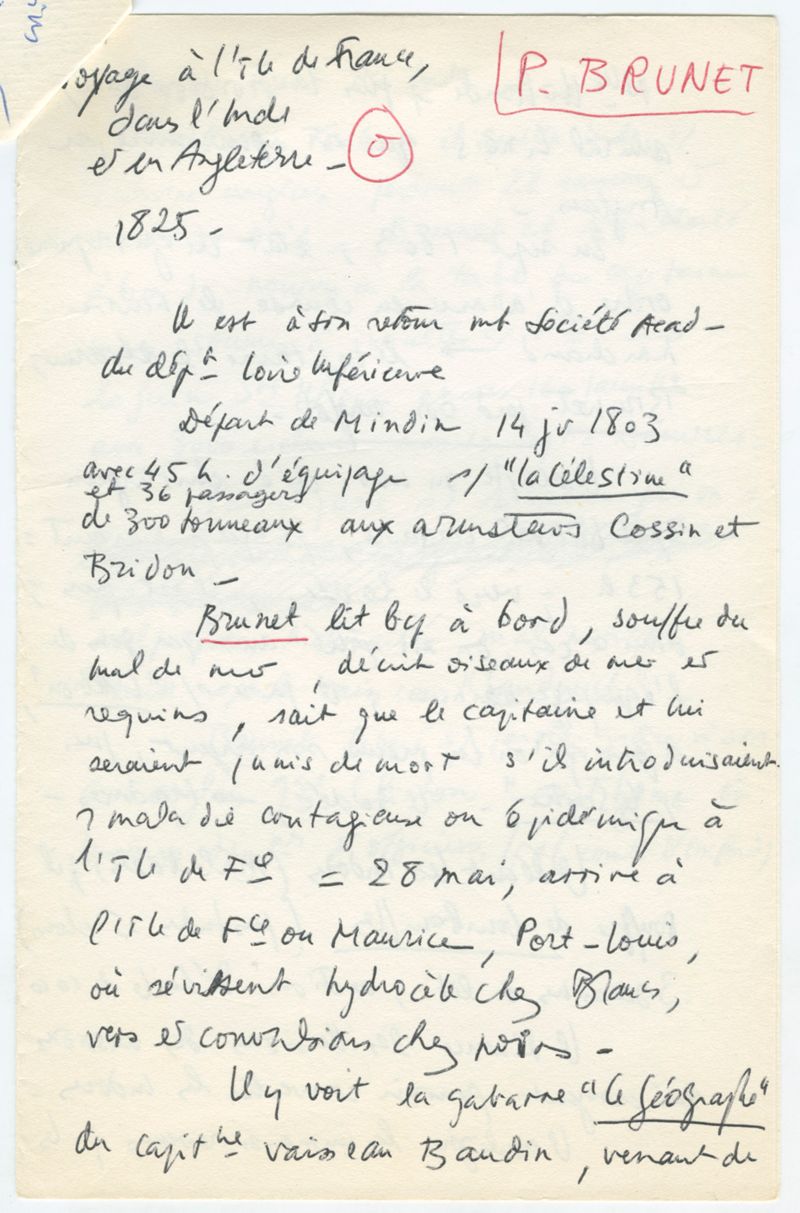 P. BRUNET
voyage à l'Ile de France,
dans l'Inde
et en Angleterre –
1825 –
Il est à son retour mt Société Acad–
du dépt Loire Inférieure
Départ de Mindin 14 jv 1803
avec 45 h. d'équipage s/ "la Célestine"
et 36 passagers
de 300 tonneaux aux armateurs Cossin et
Bridon –
Brunet lit bcp à bord, souffre du
mal de mer, décrit oiseaux de mer et
requins, sait que le capitaine et lui
seraient punis de mort s'il introduisaient
maladie contagieuse ou épidémique à
l'Ile de Fce = 28 mai, arrive à
l'Ile de Fce ou Maurice, Port-Louis,
où sévissent hydrocèle chez Blancs,
vers et convulsions chez noirs –
Il y voit la gabarre "le Géographe"
du capitne vaisseau Baudin, venant de